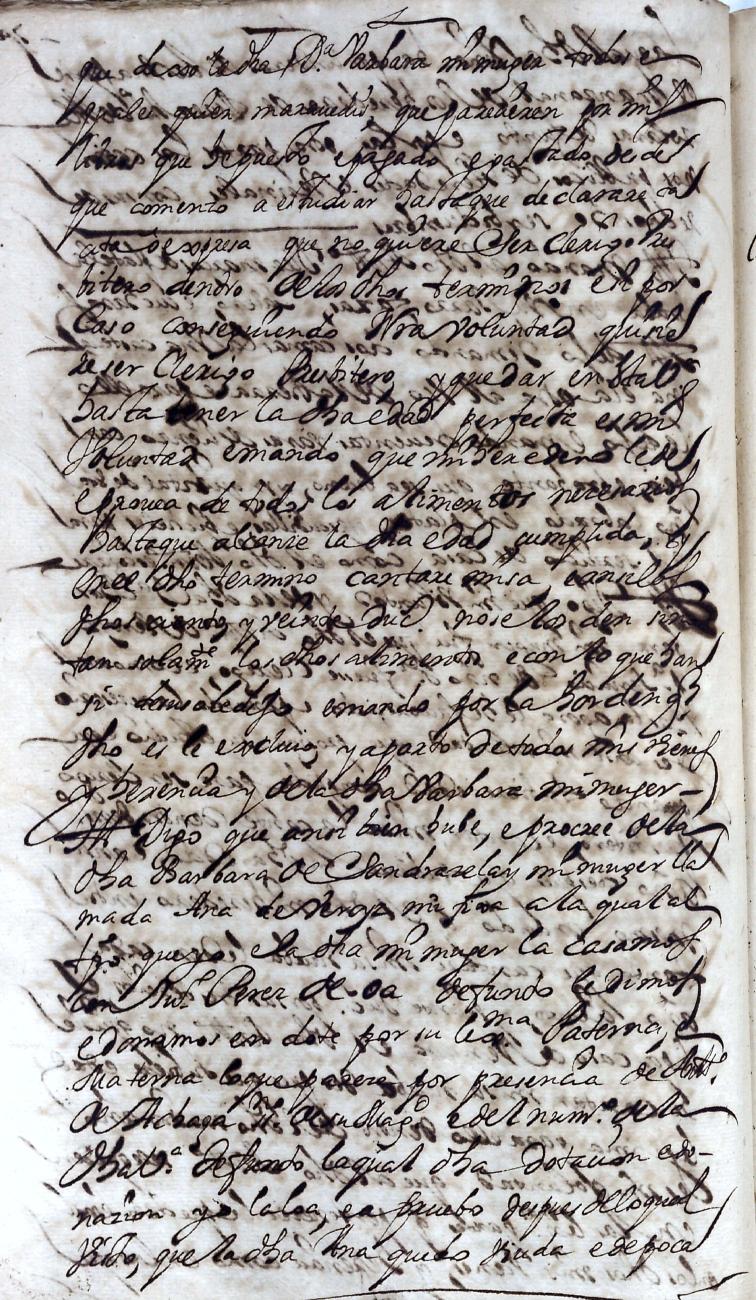 que de mi e de la dha Dª Barbara mi muger todos e
quales quier maravedis, que parecieren por mis
libros que he puesto e pagado e gastado desde
que comenzo a estudiar hasta que declarare
e expresa que no quiere ser clerigo Pres
bitero dentro de los dhos terminos e si por
Caso consiguiendo Nra voluntad quisie
re ser Clerigo Presbitero, y quedar en
hasta tener la dha edad perfecta es mi
Voluntad e mando que mis erederos le den
e provea de todos los alimentos necesarios
hasta que alcanze la dha edad cumplida, e si
en el dho termino cantare misa
dhos ciento y veinte duc. no se los den sino
tan solamte los dhos alimentos e con lo que
si e mando por la horden qe
dho es le excluio, y aparto de todos mis bienes
y herencia y de la dha Barbara mi muger
Digo que ansi bien hube, e procree de la
dha Barbara de Sandrazelay mi muger lla
mada Ana de Verga mi fija a la qual al
tpo que yo e la dha mi muger la casamos
con Juº Perez de defunto le dimos
e donamos en dote por su legma Paterna, e
Materna lo que parece por presencia de
de Achaga de su Magd e del numº de la
dha Vª defunto la qual dha dotacion e do-
nazion yo la loa, e apruebo despues de lo qual
que la dha Ana quedo viuda e de poca